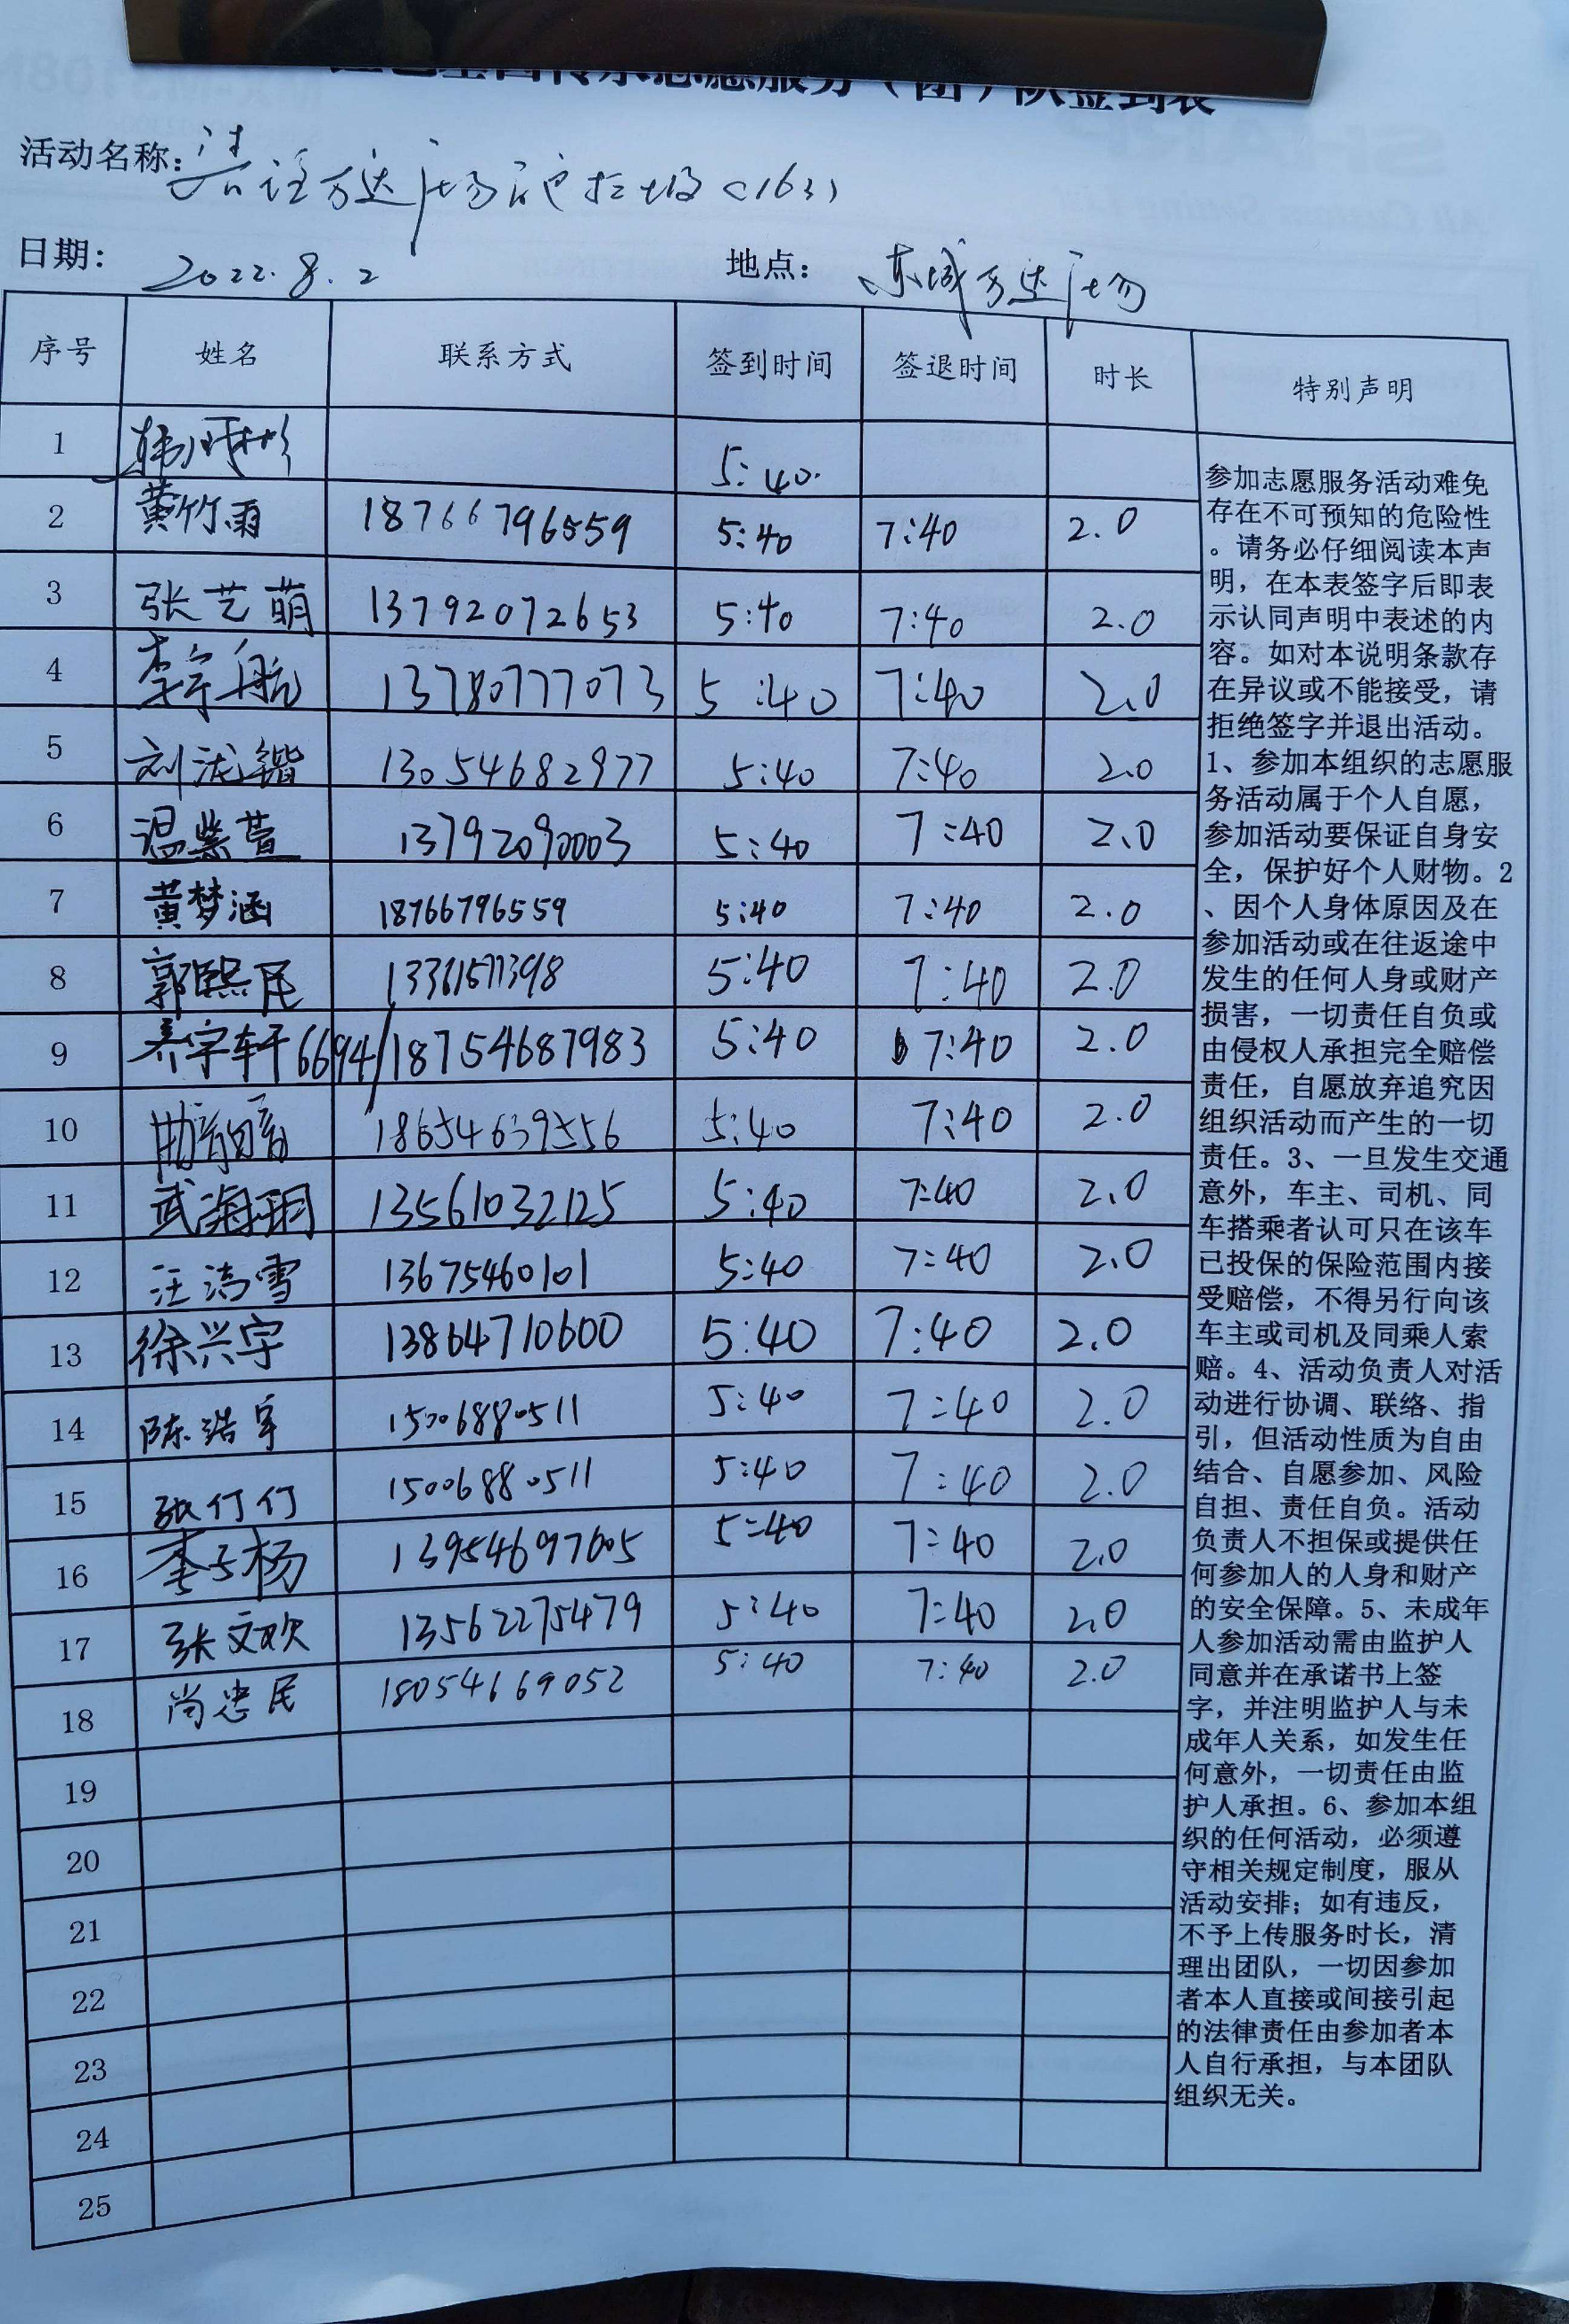 志愿服务（团）队签到表
活动名称：清理万达广场 垃圾（163）
日期： 2022.8.2 地点： 东城万达广场
序号 姓名 联系方式 签到时间 签退时间 时长 特别声明
1 5:40
2 黄竹雨 18766796559 5:40 7:40 2.0
3 张艺萌 13792072653 5:40 7:40 2.0
4 李宇航 13780777073 5:40 7:40 2.0
5 刘 锴 13054682977 5:40 7:40 2.0
6 温紫萱 13792090003 5:40 7:40 2.0
7 黄梦涵 18766796559 5:40 7:40 2.0
8 郭熙民 5:40 7:40 2.0
9 乔宇轩6694/18754687983 5:40 7:40 2.0
10 18654639556 5:40 7:40 2.0
11 武 13561032125 5:40 7:40 2.0
12 汪 雪 13675460101 5:40 7:40 2.0
13 徐兴宇 13864710600 5:40 7:40 2.0
14 陈浩宇 15006880511 5:40 7:40 2.0
15 张仃仃 15006880511 5:40 7:40 2.0
16 李子杨 13954697605 5:40 7:40 2.0
17 张文欢 13562275479 5:40 7:40 2.0
18 尚忠民 18054669052 5:40 7:40 2.0
19
20
21
22
23
24
25
参加志愿服务活动难免
存在不可预知的危险性
。请务必仔细阅读本声
明，在本表签字后即表
示认同声明中表述的内
容。如对本说明条款存
在异议或不能接受，请
拒绝签字并退出活动。
1、参加本组织的志愿服
务活动属于个人自愿，
参加活动要保证自身安
全，保护好个人财物。2
、因个人身体原因及在
参加活动或在往返途中
发生的任何人身或财产
损害，一切责任自负或
由侵权人承担完全赔偿
责任，自愿放弃追究因
组织活动而产生的一切
责任。3、一旦发生交通
意外，车主、司机、同
车搭乘者认可只在该车
已投保的保险范围内接
受赔偿，不得另行向该
车主或司机及同乘人索
赔。4、活动负责人对活
动进行协调、联络、指
引，但活动性质为自由
结合、自愿参加、风险
自担、责任自负。活动
负责人不担保或提供任
何参加人的人身和财产
的安全保障。5、未成年
人参加活动需由监护人
同意并在承诺书上签
字，并注明监护人与未
成年人关系，如发生任
何意外，一切责任由监
护人承担。6、参加本组
织的任何活动，必须遵
守相关规定制度，服从
活动安排；如有违反，
不予上传服务时长，清
理出团队，一切因参加
者本人直接或间接引起
的法律责任由参加者本
人自行承担，与本团队
组织无关。